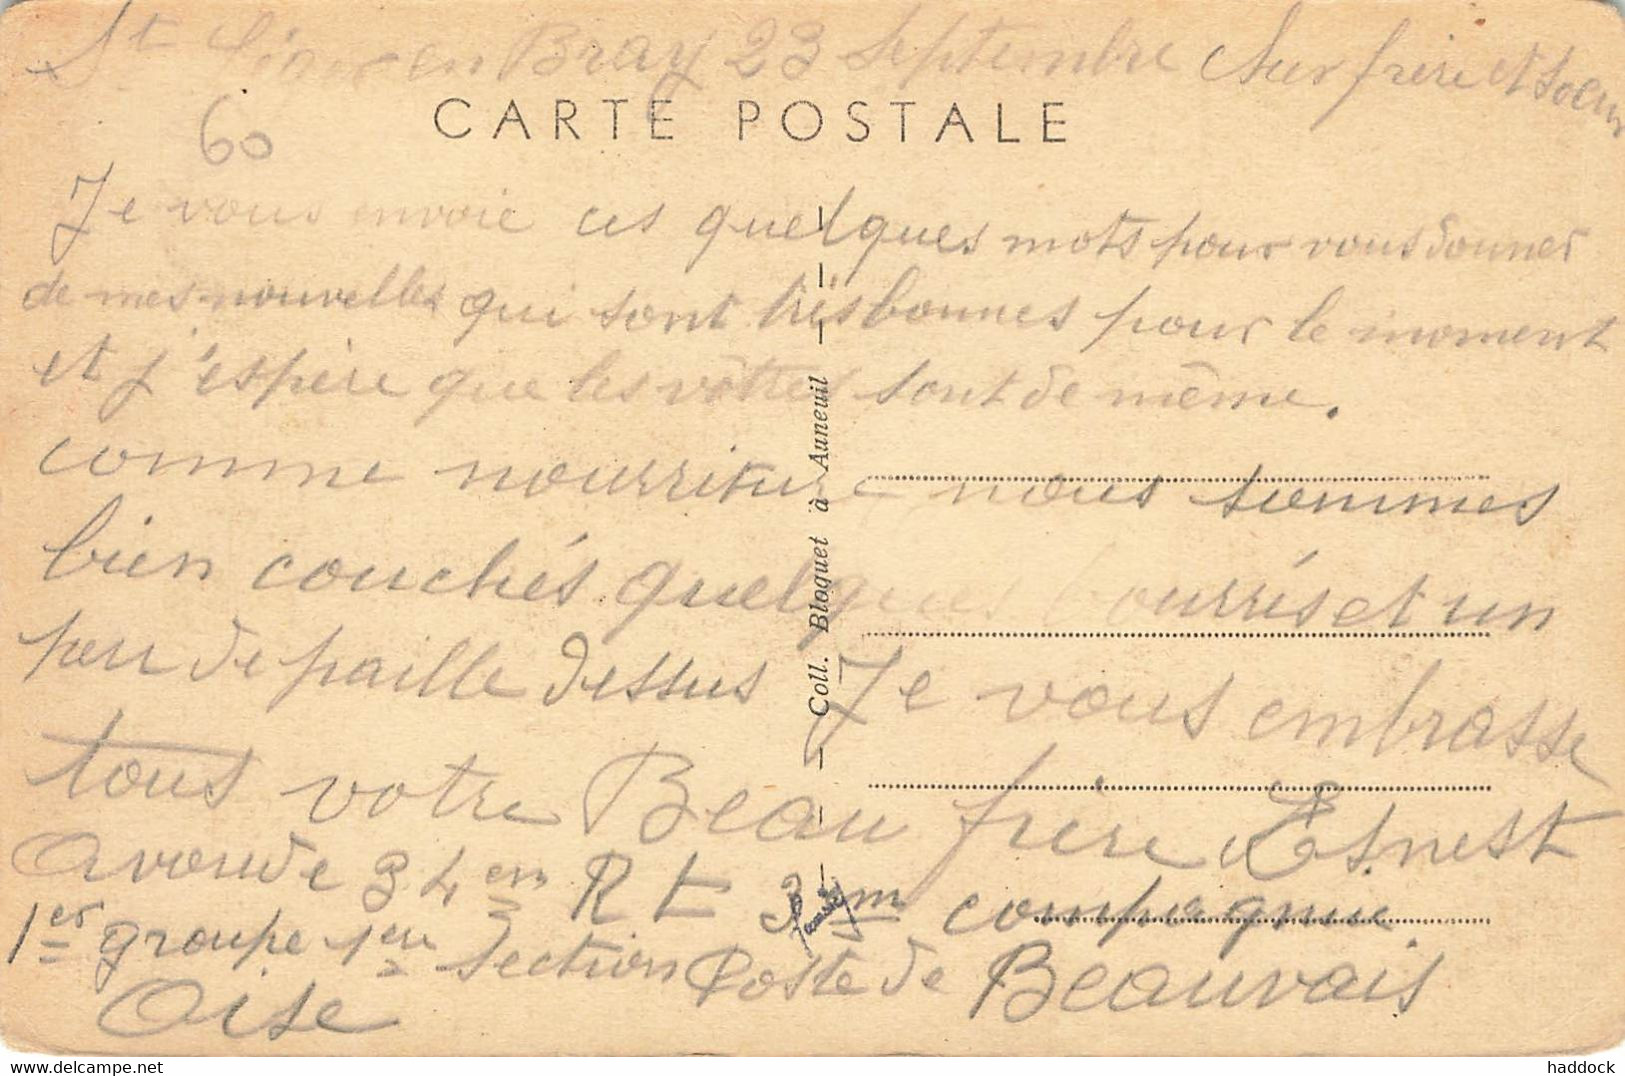 St en Bray 23 Septembre Cher frère et soeur
CARTE POSTALE
60
Je vous envoie ces quelques mots pour vous donner
de mes nouvelles qui sont très bonnes pour le moment
et j'espère que les vôtres sont de même.
comme nourriture nous sommes
bien couchés quelques bourrés et un
peu de paille dessus Je vous embrasse
tous votre Beau frère Ernest
34 em R t 3 em compagnie
1er groupe 1em Section Poste de Beauvais
Oise
Coll. Bloquet à Auneuil
haddock